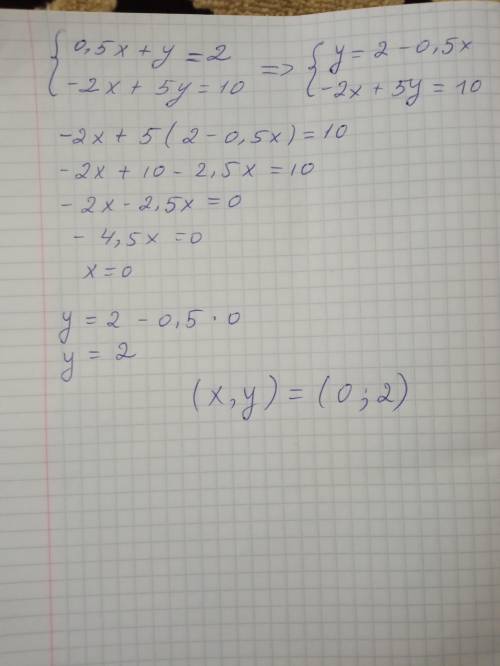 { 0,5x + y = 2 => { y = 2 - 0,5x
{ -2x + 5y = 10 { -2x + 5y = 10
-2x + 5(2 - 0,5x) = 10
-2x + 10 - 2,5x = 10
-2x - 2,5x = 0
-4,5x = 0
x = 0
y = 2 - 0,5 · 0
y = 2
(x, y) = (0; 2)